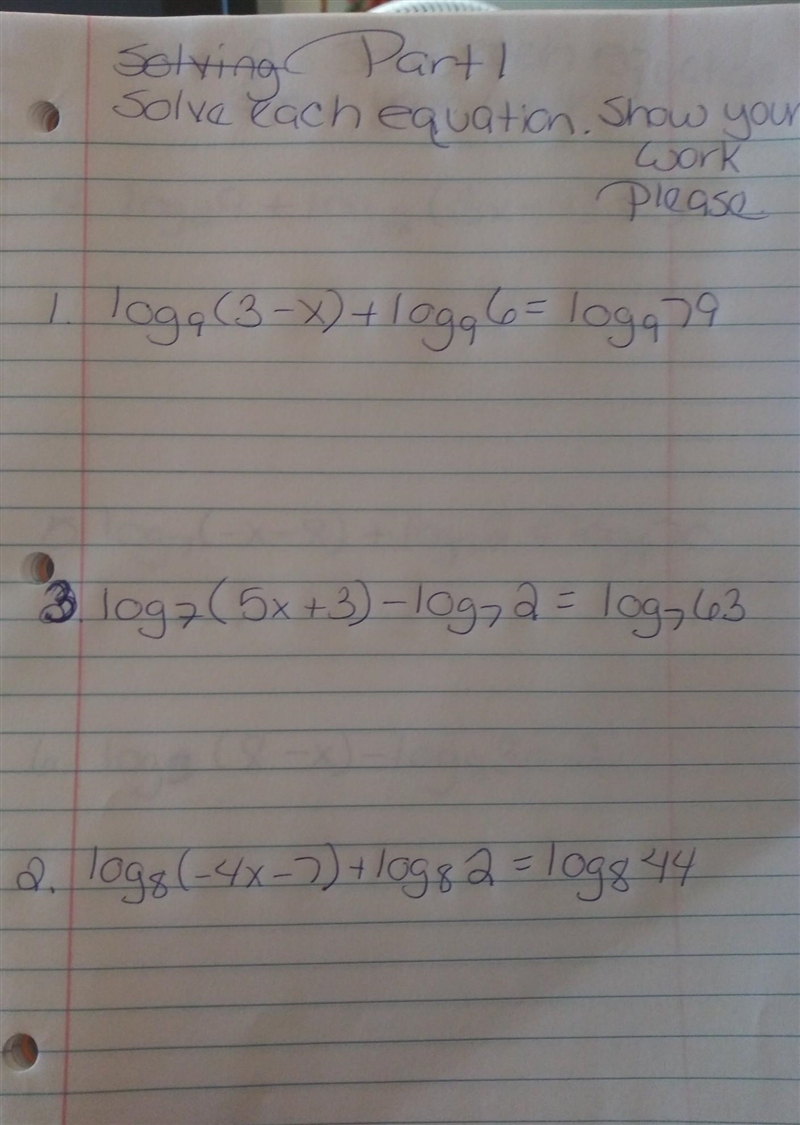 Solving Part 1
Solve each equation. Show your
work
please
1. log₉(3-x)+log₉6=log₉79
3. log₇(5x+3)-log₇2=log₇63
2. log₈(-4x-7)+log₈2=log₈44